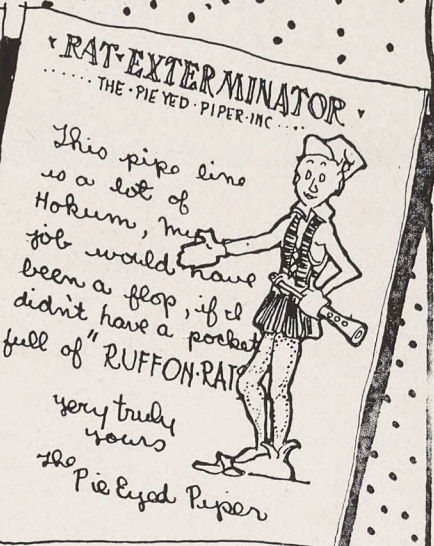 RAT·EXTERMINATOR
THE·PIE YED·PIPER·INC
This pipe line
is a lot of
Hokum, My
job would have
been a flop, if I
didn't have a pocket
full of "RUFFON·RATS
very truly
yours
The
Pie Eyed Piper